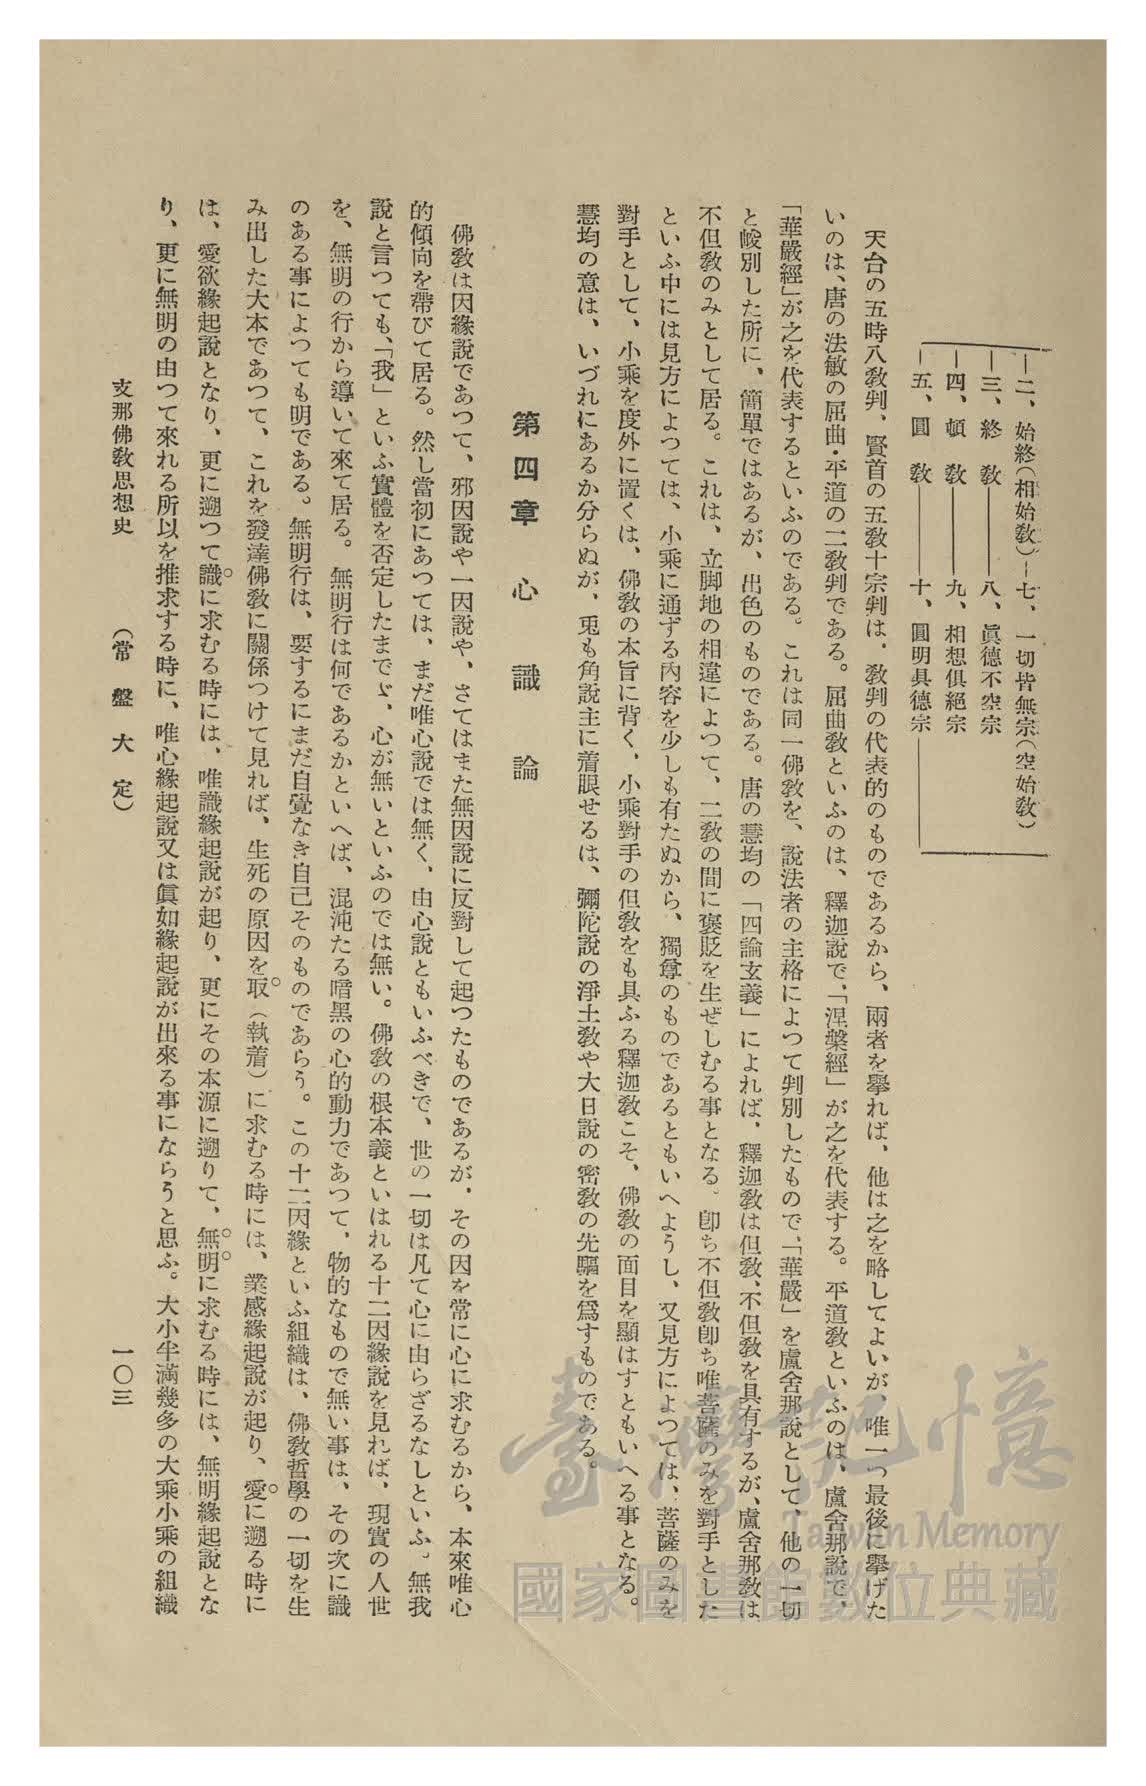 二、始終(相始敎)―七、一切皆無宗(空始敎)
三、終敎―八、眞德不空宗
四、頓敎―九、相想俱絕宗
五、圓敎―十、圓明具德宗
天台の五時八敎判、賢首の五敎十宗判は、敎判の代表的のものであるから、兩者を擧れば、他は之を略してよいが、唯一つ最後に擧げた
いのは、唐の法敏の屈曲・平道の二敎判である。屈曲敎といふのは、釋迦說で、「涅槃經」が之を代表する。平道敎といふのは、盧舍那說で、
「華嚴經」が之を代表するといふのである。これは同一佛敎を、說法者の主格によつて判別したもので、「華嚴」を盧舍那說として、他の一切
と峻別した所に、簡單ではあるが、出色のものである。唐の慧均の「四論玄義」によれば、釋迦敎は但敎、不但敎を具有するが、盧舍那敎は
不但敎のみとして居る。これは、立脚地の相違によつて、二敎の間に褒貶を生ぜしむる事となる。卽ち不但敎卽ち唯菩薩のみを對手とした
といふ中には見方によつては、小乘に通ずる內容を少しも有たぬから、獨尊のものであるともいへようし、又見方によつては、菩薩のみを
對手として、小乘を度外に置くは、佛敎の本旨に背く、小乘對手の但敎をも具ふる釋迦敎こそ、佛敎の面目を顯はすともいへる事となる。
慧均の意は、いづれにあるか分らぬが、兎も角說主に着眼せるは、彌陀說の淨土敎や大日說の密敎の先驅を爲すものである。
第四章 心識論
佛敎は因緣說であつて、邪因說や一因說や、さてはまた無因說に反對して起つたものであるが、その因を常に心に求むるから、本來唯心
的傾向を帶びて居る。然し當初にあつては、まだ唯心說では無く、由心說ともいふべきで、世の一切は凡て心に由らざるなしといふ。無我
說と言つても、「我」といふ實體を否定したまでゞ、心が無いといふのでは無い。佛敎の根本義といはれる十二因緣說を見れば、現實の人世
を、無明の行から導いて來て居る。無明行は何であるかといへば、混沌たる暗黑の心的動力であつて、物的なもので無い事は、その次に識
のある事によつても明である。無明行は、要するにまだ自覺なき自己そのものであらう。この十二因緣といふ組織は、佛敎哲學の一切を生
み出した大本であつて、これを發達佛敎に關係つけて見れば、生死の原因を取(執着)に求むる時には、業感緣起說が起り、愛に遡る時に
は、愛欲緣起說となり、更に遡つて識に求むる時には、唯識緣起說が起り、更にその本源に遡りて、無明に求むる時には、無明緣起說とな
り、更に無明の由つて來れる所以を推求する時に、唯心緣起說又は眞如緣起說が出來る事にならうと思ふ。大小半滿幾多の大乘小乘の組織
支那佛敎思想史 (常盤大定) 一〇三
臺灣記憶
Taiwan Memory
國家圖書館數位典藏